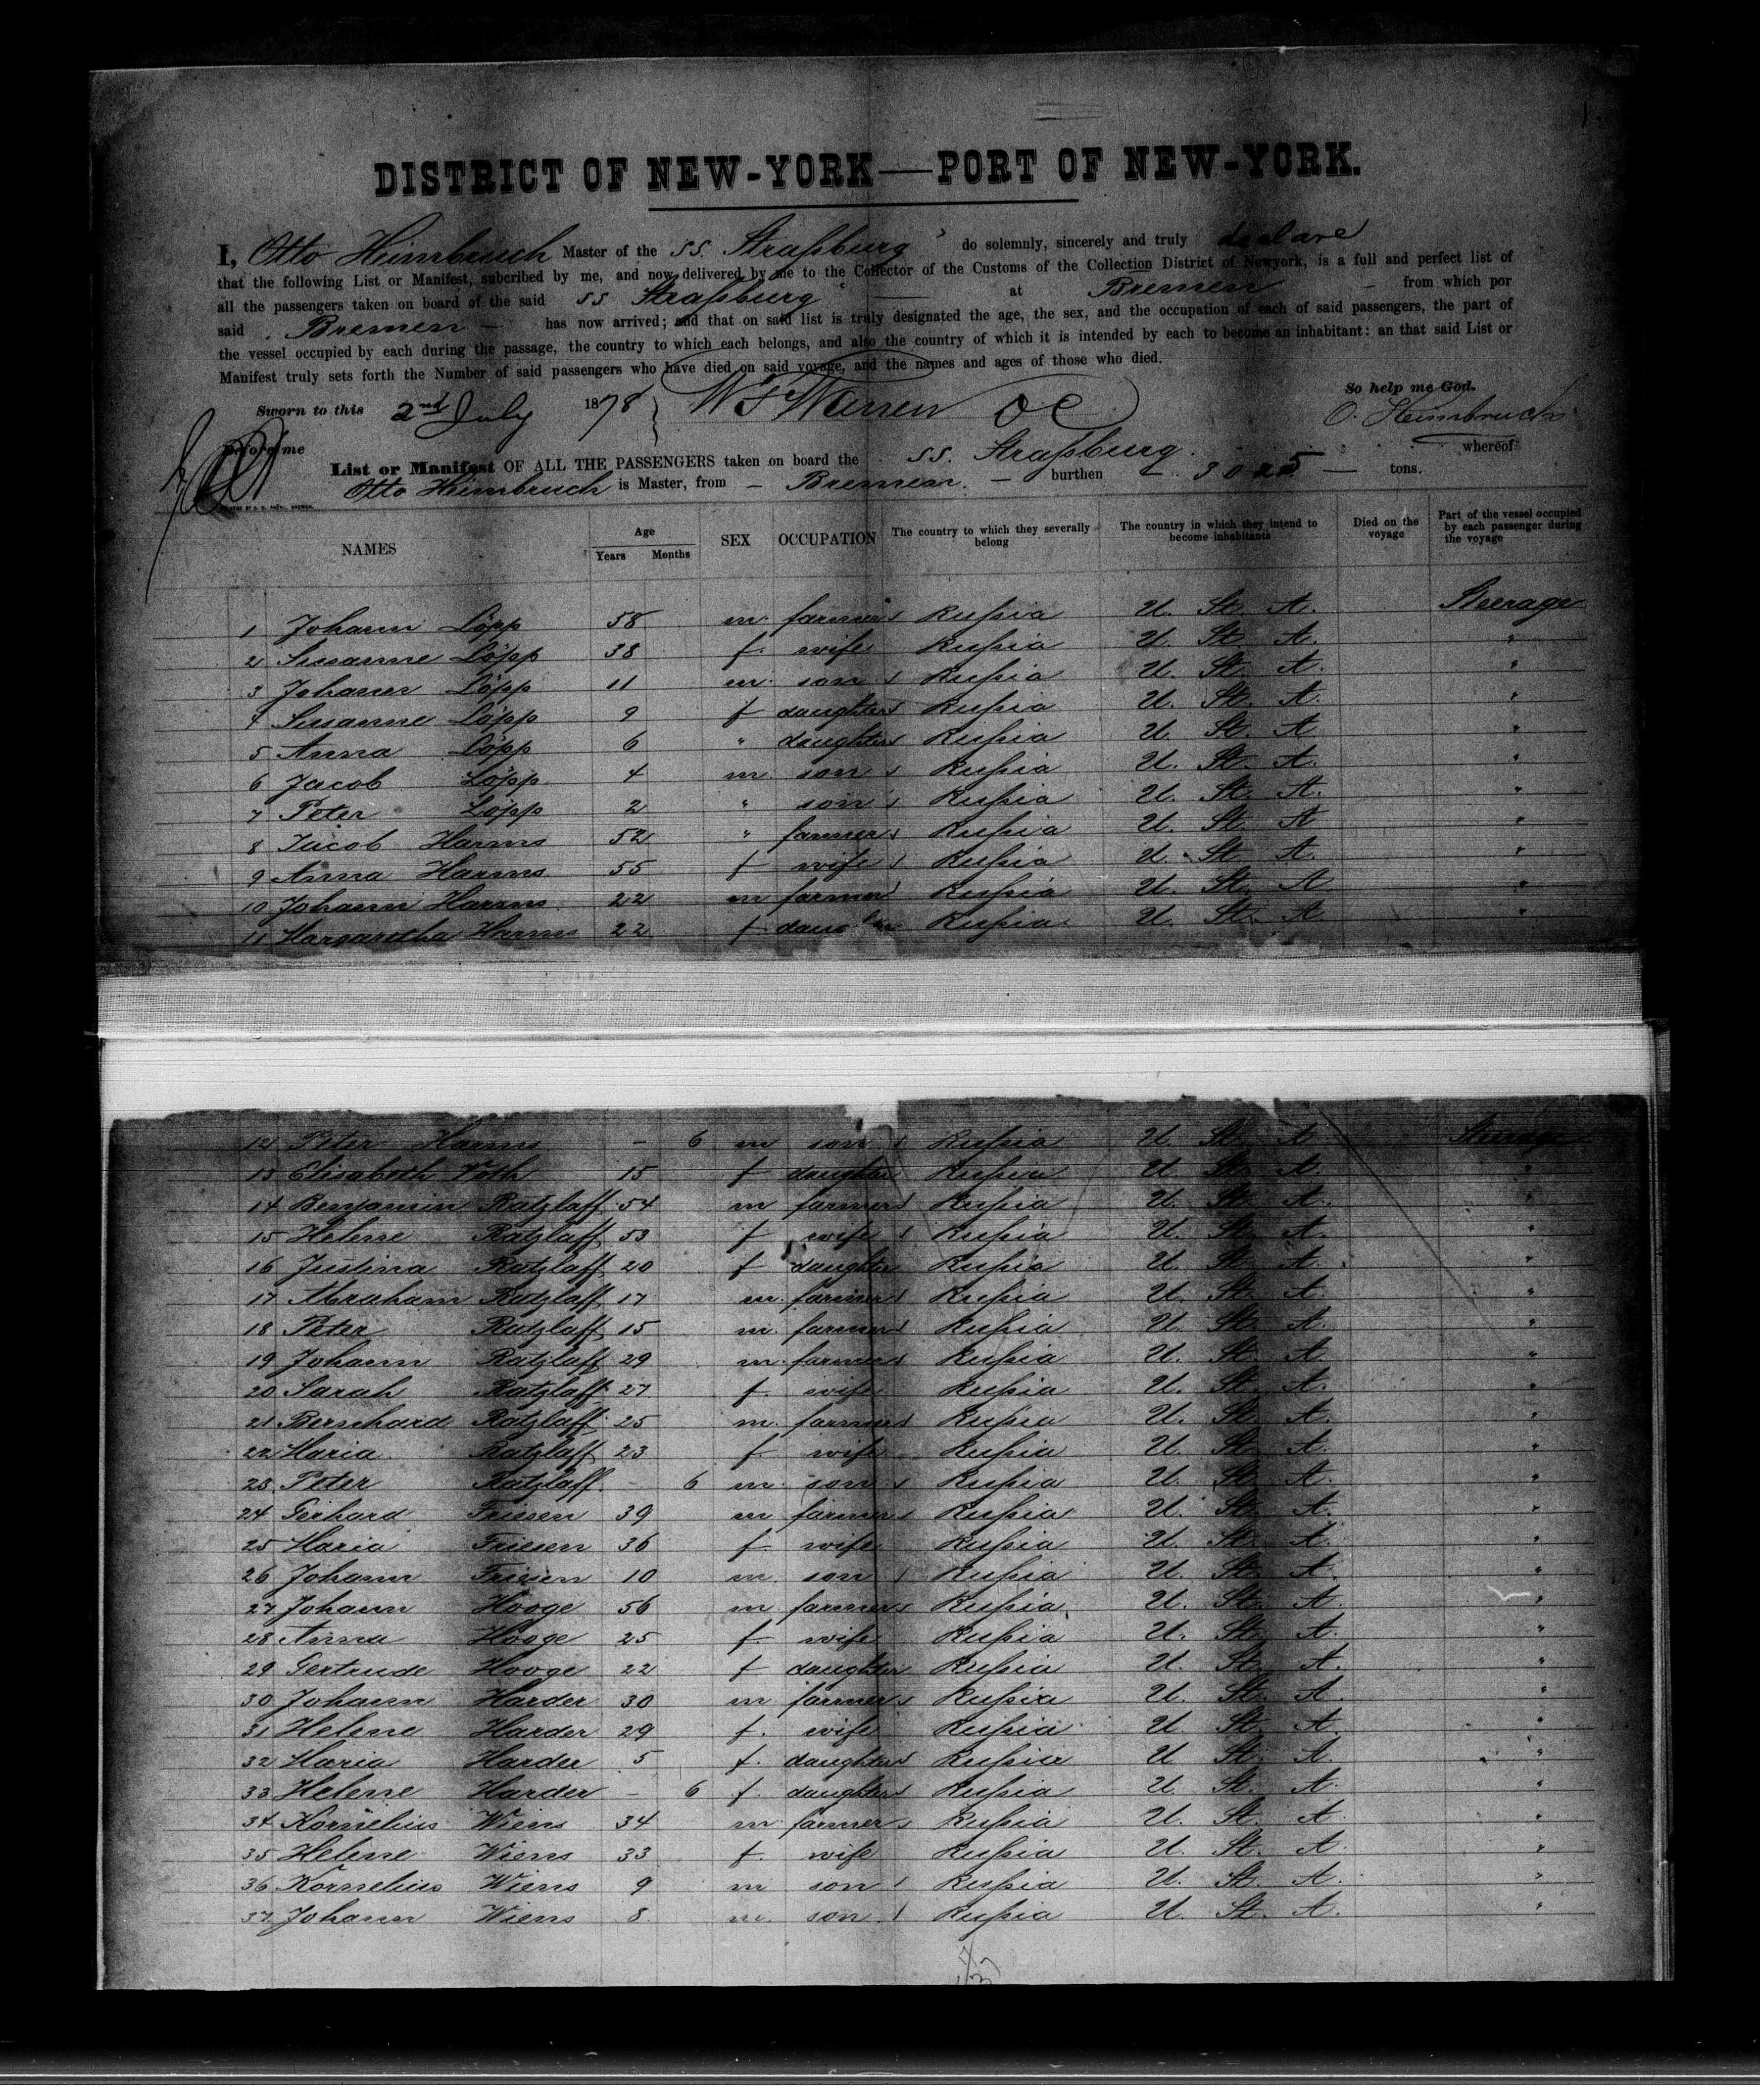 DISTRICT OF NEW-YORK—PORT OF NEW-YORK.
I, Otto Heimbruch Master of the SS. Straßburg do solemnly, sincerely and truly declare
that the following List or Manifest, subcribed by me, and now delivered by me to the Collector of the Customs of the Collection District of Newyork, is a full and perfect list of
all the passengers taken on board of the said SS Straßburg at Bremen from which por
said Bremen has now arrived; and that on said list is truly designated the age, the sex, and the occupation of each of said passengers, the part of
the vessel occupied by each during the passage, the country to which each belongs, and also the country of which it is intended by each to become an inhabitant: an that said List or
Manifest truly sets forth the Number of said passengers who have died on said voyage, and the names and ages of those who died.
So help me God.
Sworn to this 2nd July 1878 } O. Heimbruch
before me
List or Manifest OF ALL THE PASSENGERS taken on board the SS. Straßburg. whereof
Otto Heimbruch is Master, from — Bremen. — burthen 3025 — tons.
NAMES Age Years Months SEX OCCUPATION The country to which they severally belong The country in which they intend to become inhabitants Died on the voyage Part of the vessel occupied by each passenger during the voyage
1 Johann Löpp 58 m. farmer Rußia U. St. A. Steerage
2 Susanne Löpp 38 f. wife Rußia U. St. A. "
3 Johann Löpp 11 m. son Rußia U. St. A. "
4 Susanne Löpp 9 f daughter Rußia U. St. A. "
5 Anna Löpp 6 " daughter Rußia U. St. A "
6 Jacob Löpp 4 m son Rußia U. St. A. "
7 Peter Löpp 2 " son Rußia U. St. A. "
8 Jacob Harms 52 " farmer Rußia U. St. A "
9 Anna Harms 55 f wife Rußia U. St. A. "
10 Johann Harms 22 m farmer Rußia U. St. A "
11 Margaretha Harms 22 f daughter Rußia U. St. A "
12 Peter Harms - 6 m son Rußia U. St. A Steerage
13 Elisabeth Voth 15 f daughter Rußia U. St. A. "
14 Benjamin Ratzlaff 54 m farmer Rußia U. St. A. "
15 Helene Ratzlaff 53 f wife Rußia U. St. A. "
16 Justina Ratzlaff 20 f daughter Rußia U. St. A. "
17 Abraham Ratzlaff 17 m. farmer Rußia U. St. A. "
18 Peter Ratzlaff 15 m. farmer Rußia U. St. A. "
19 Johann Ratzlaff 29 m. farmer Rußia U. St. A "
20 Sarah Ratzlaff 27 f. wife Rußia U. St. A. "
21 Bernhard Ratzlaff 25 m. farmer Rußia U. St. A. "
22 Maria Ratzlaff 23 f. wife Rußia U. St. A. "
23 Peter Ratzlaff - 6 m. son Rußia U. St. A. "
24 Gerhard Friesen 39 m farmer Rußia U. St. A. "
25 Maria Friesen 36 f wife Rußia U. St. A. "
26 Johann Friesen 10 m. son Rußia U. St. A. "
27 Johann Hooge 56 m. farmer Rußia U. St. A. "
28 Anna Hooge 25 f. wife Rußia U. St. A. "
29 Gertrude Hooge 22 f daughter Rußia U. St. A. "
30 Johann Harder 30 m farmer Rußia U. St. A. "
31 Helene Harder 29 f. wife Rußia U St. A. "
32 Maria Harder 5 f. daughter Rußia U St. A. "
33 Helene Harder - 6 f. daughter Rußia U. St. A. "
34 Kornelius Wiens 34 m farmer Rußia U. St. A. "
35 Helene Wiens 33 f. wife Rußia U. St. A "
36 Kornelius Wiens 9 m son Rußia U. St. A. "
37 Johann Wiens 8 m. son Rußia U. St. A. "